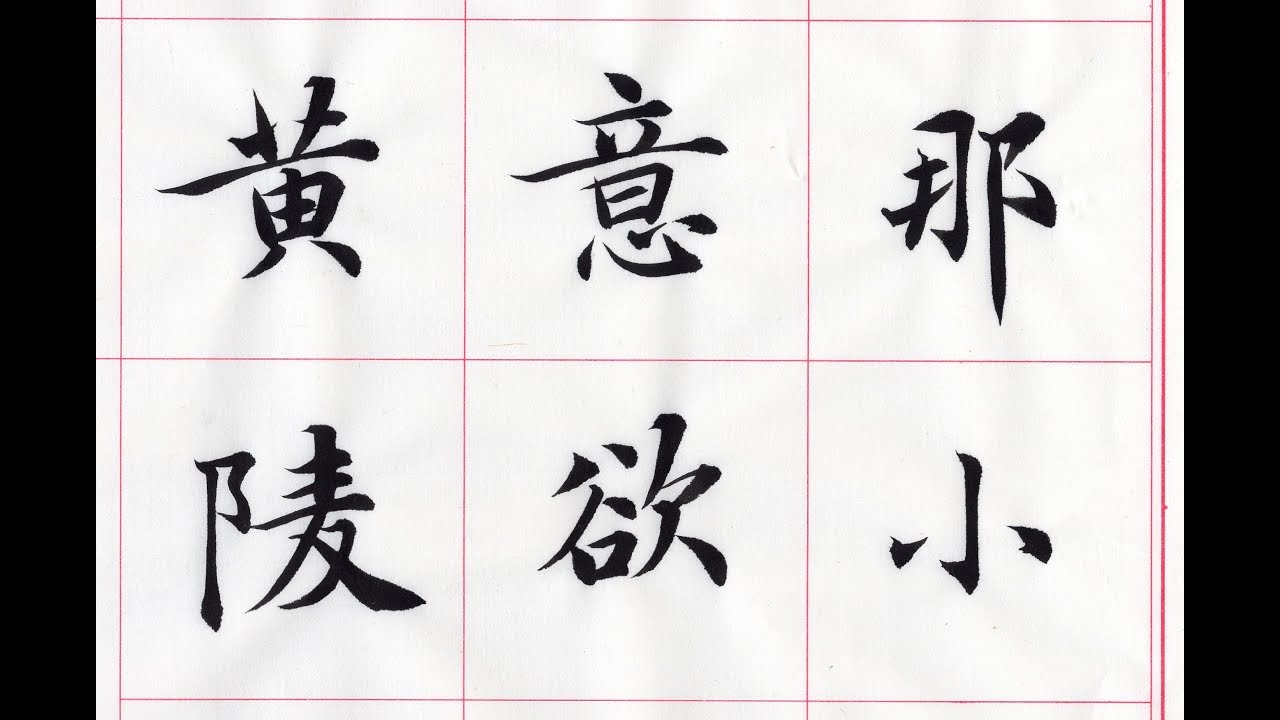 那小
意欲
黄陵